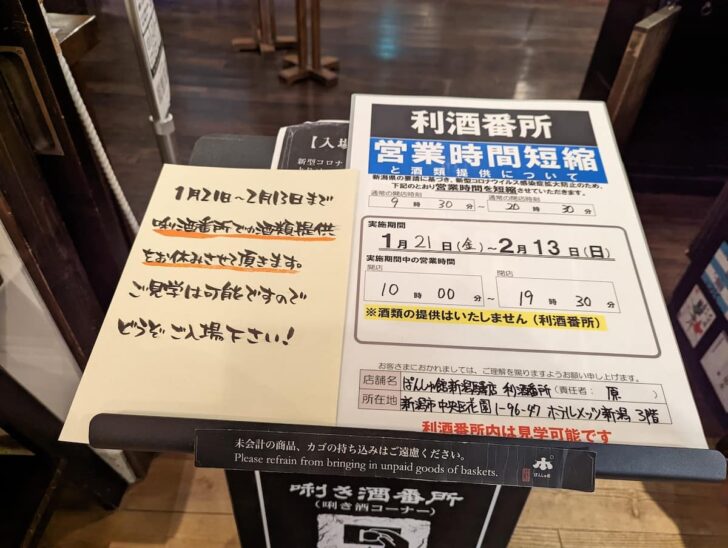 1月21日～2月13日まで
唎酒番所での酒類提供
をお休みさせて頂きます。
ご見学は可能ですので
どうぞご入場下さい！
【入場
新型コロナ
利酒番所
営業時間短縮
と酒類提供について
新潟県の要請に基づき、新型コロナウイルス感染症拡大防止のため、
下記のとおり営業時間を短縮させていただきます。
通常の開店時刻 通常の閉店時刻
9時30分～20時30分
実施期間
1月21日(金)～2月13日(日)
実施期間中の営業時間
開店 閉店
10時00分～19時30分
※酒類の提供はいたしません（利酒番所）
お客さまにおかれましては、ご理解を賜りますようお願い申し上げます。
店舗名 ぽんしゅ館新潟驛店 利酒番所（責任者：原）
所在地 新潟市中央区花園1-96-47 ホテルメッツ新潟 3階
利酒番所内は見学可能です
未会計の商品、カゴの持ち込みはご遠慮ください。
Please refrain from bringing in unpaid goods of baskets.
ぽんしゅ館
唎き酒番所
（唎き酒コーナー）